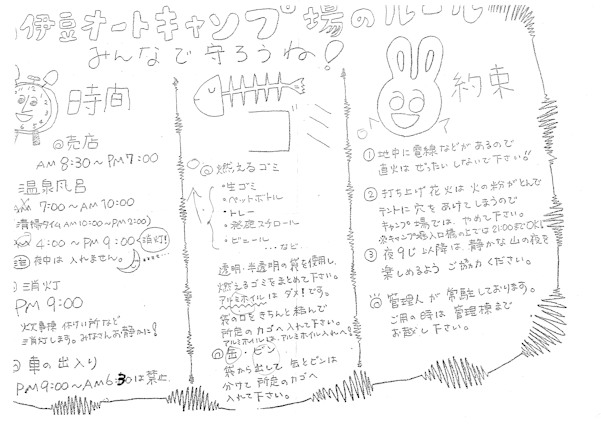 伊豆オートキャンプ場のルール
みんなで守ろうね!
時間
◎売店
AM 8:30〜PM 7:00
温泉風呂
7:00〜AM 10:00
清掃タイム AM 10:00〜PM 2:00)
4:00〜PM 9:00 消灯!
夜中は入れません。
消灯
PM 9:00
炊事棟 作り所など
消灯します。みなさんお静かに!
車の出入り
PM 9:00〜AM 6:30は禁止
ゴミ
◎燃えるゴミ
・生ゴミ
・ペットボトル
・トレー
・発泡スチロール
・ビニール
…など
透明・半透明の袋を使用し、
燃えるゴミをまとめて下さい。
アルミホイルはダメ!です。
袋の口をきちんと結んで
所定のカゴへ入れて下さい。
アルミホイルは、アルミホイル入れへ!
◎缶・ビン
袋から出して 缶とビンは
分けて 所定のカゴへ
入れて下さい。
約束
① 地中に電線などがあるので
直火は ぜったい しないで下さい!!
② 打ち上げ花火は 火の粉がとんで
テントに 穴を あけてしまうので
キャンプ場では やめて下さい。
※キャンプ場入口橋の上では 21:00までOK!
③ 夜9じ以降は、静かな山の夜を
楽しめるよう ご協力ください。
◎管理人が 常駐しております。
ご用の時は 管理棟まで
お越し下さい。